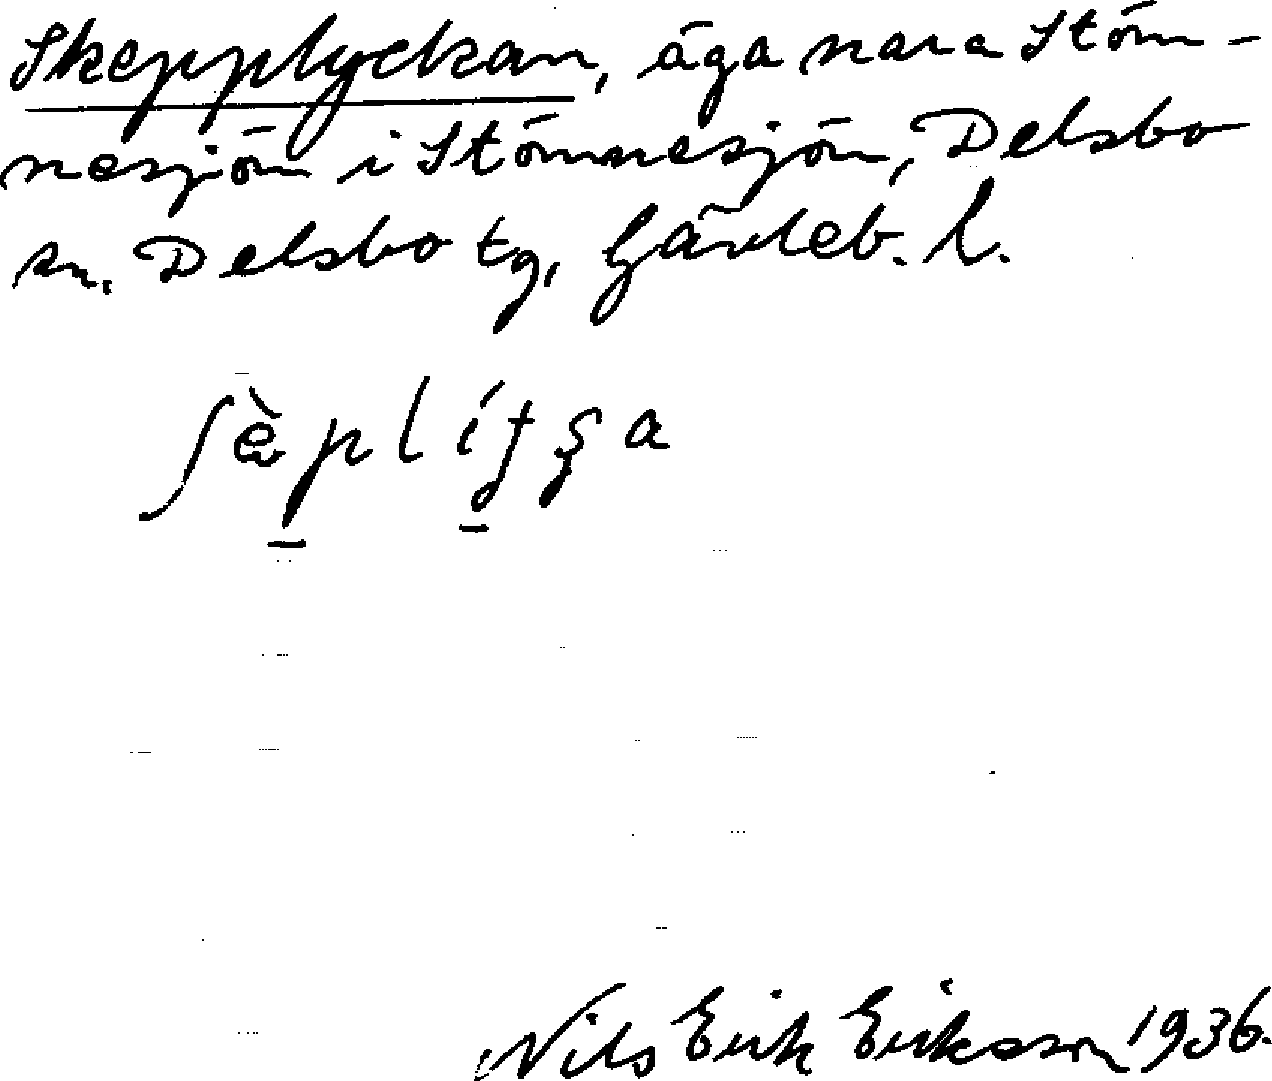 Skepplyckan, äga nära Stöm-
nesjön i Stömnesjön, Delsbo
sn. Delsbo tg, Gävleb. l.
Nils Erik Eriksson 1936.